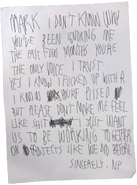 MARK I DON'T KNOW WHY
YOU'VE BEEN IGNORING ME
THE PAST FEW MONTHS YOU'RE
THE ONLY VOICE I TRUST
YES I KNOW I FUCKED UP WITH
I KNOW YOU'RE PISSED
BUT PLEASE DON'T MAKE ME FEEL
LIKE SHIT I JUST WANT
US TO BE WORKING TOGETHER
ON PROJECTS LIKE WE DID BEFORE
SINCERELY, NP